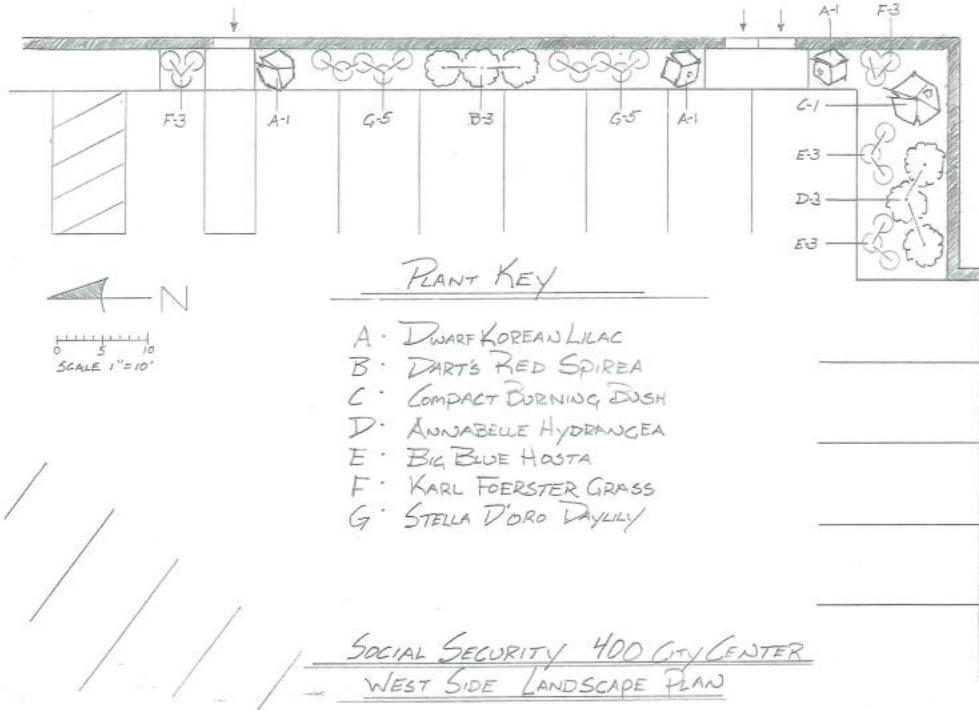 A-1 F-3
F-3 A-1 G-5 B-3 G-5 A-1 C-1
E-3
D-3
E-3
PLANT KEY
N
0 5 10
SCALE 1"=10'
A · DWARF KOREAN LILAC
B · DART'S RED SPIREA
C · COMPACT BURNING BUSH
D · ANNABELLE HYDRANGEA
E · BIG BLUE HOSTA
F · KARL FOERSTER GRASS
G · STELLA D'ORO DAYLILY
SOCIAL SECURITY 400 CITY CENTER
WEST SIDE LANDSCAPE PLAN